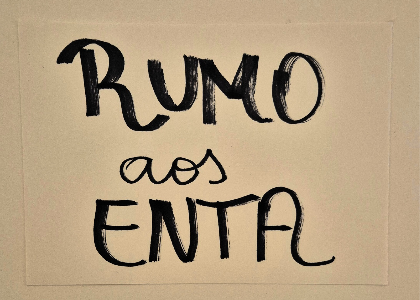 RUMO
aos
ENTA